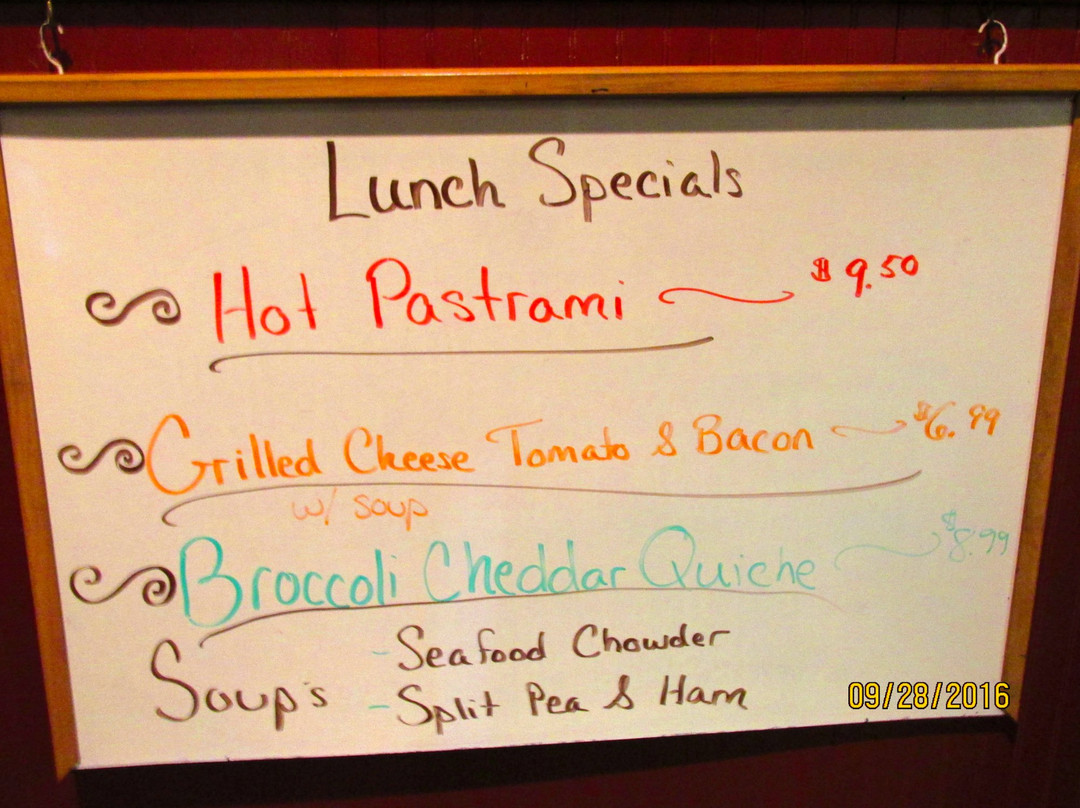 Lunch Specials
Hot Pastrami $9.50
Grilled Cheese Tomato & Bacon $6.99
w/ soup
Broccoli Cheddar Quiche $8.99
Soup's - Seafood Chowder
- Split Pea & Ham
09/28/2016